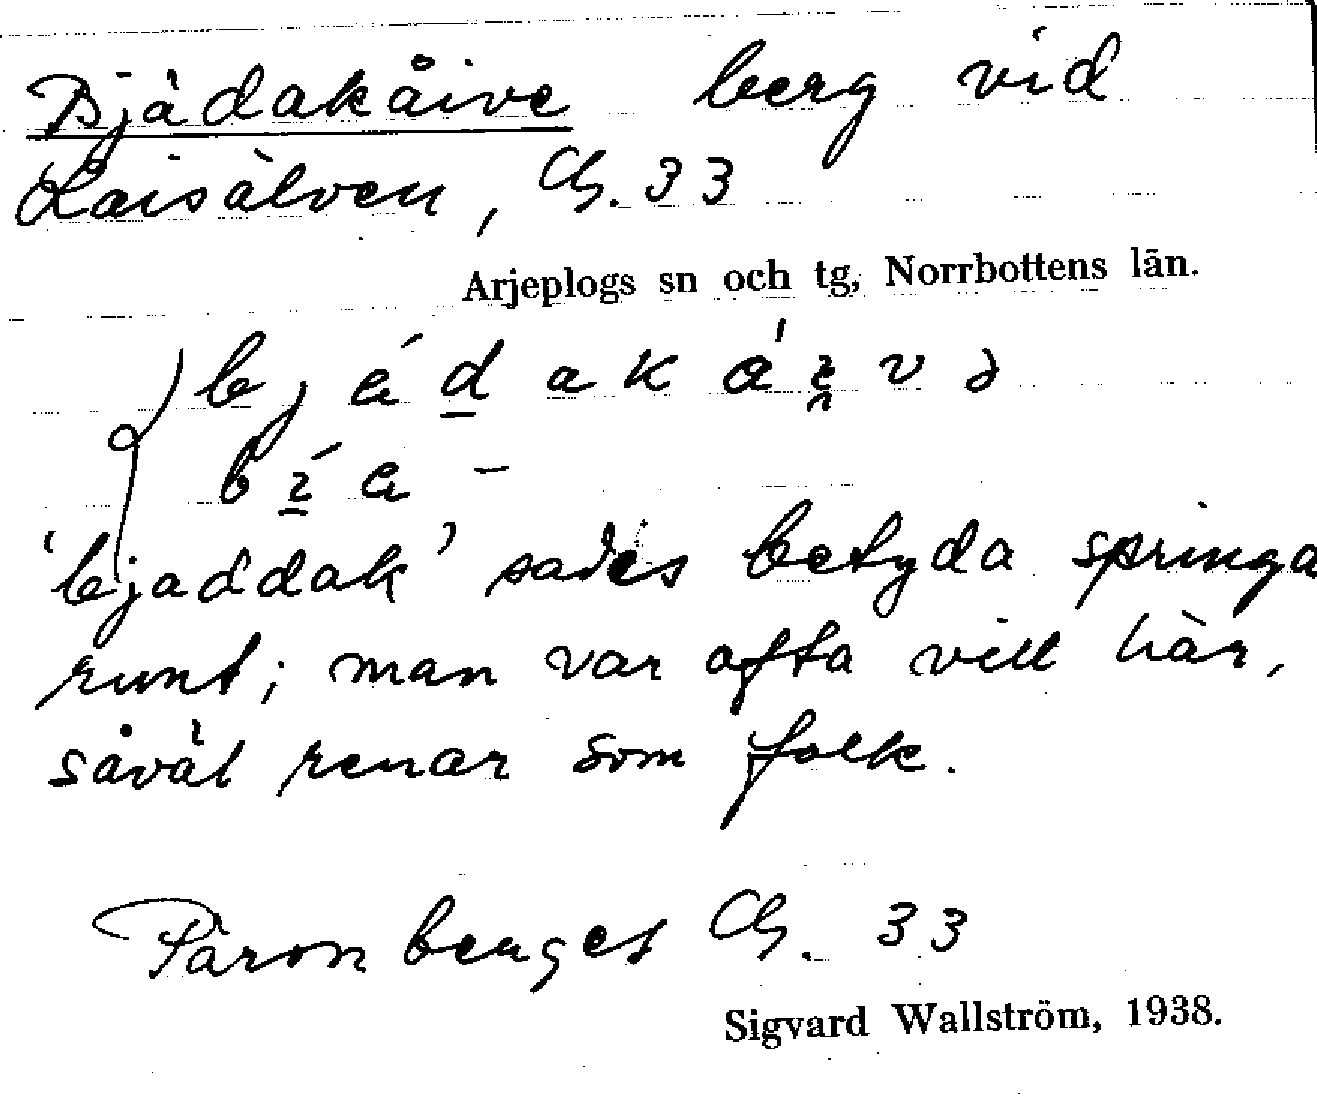 Bjädakåive berg vid
Laisälven, Cb. 33
Arjeplogs sn och tg, Norrbottens län.
'bjaddak' sades betyda springa
runt; man var ofta vill här,
såväl renar som folk.
Päronberget Cb. 33
Sigvard Wallström, 1938.